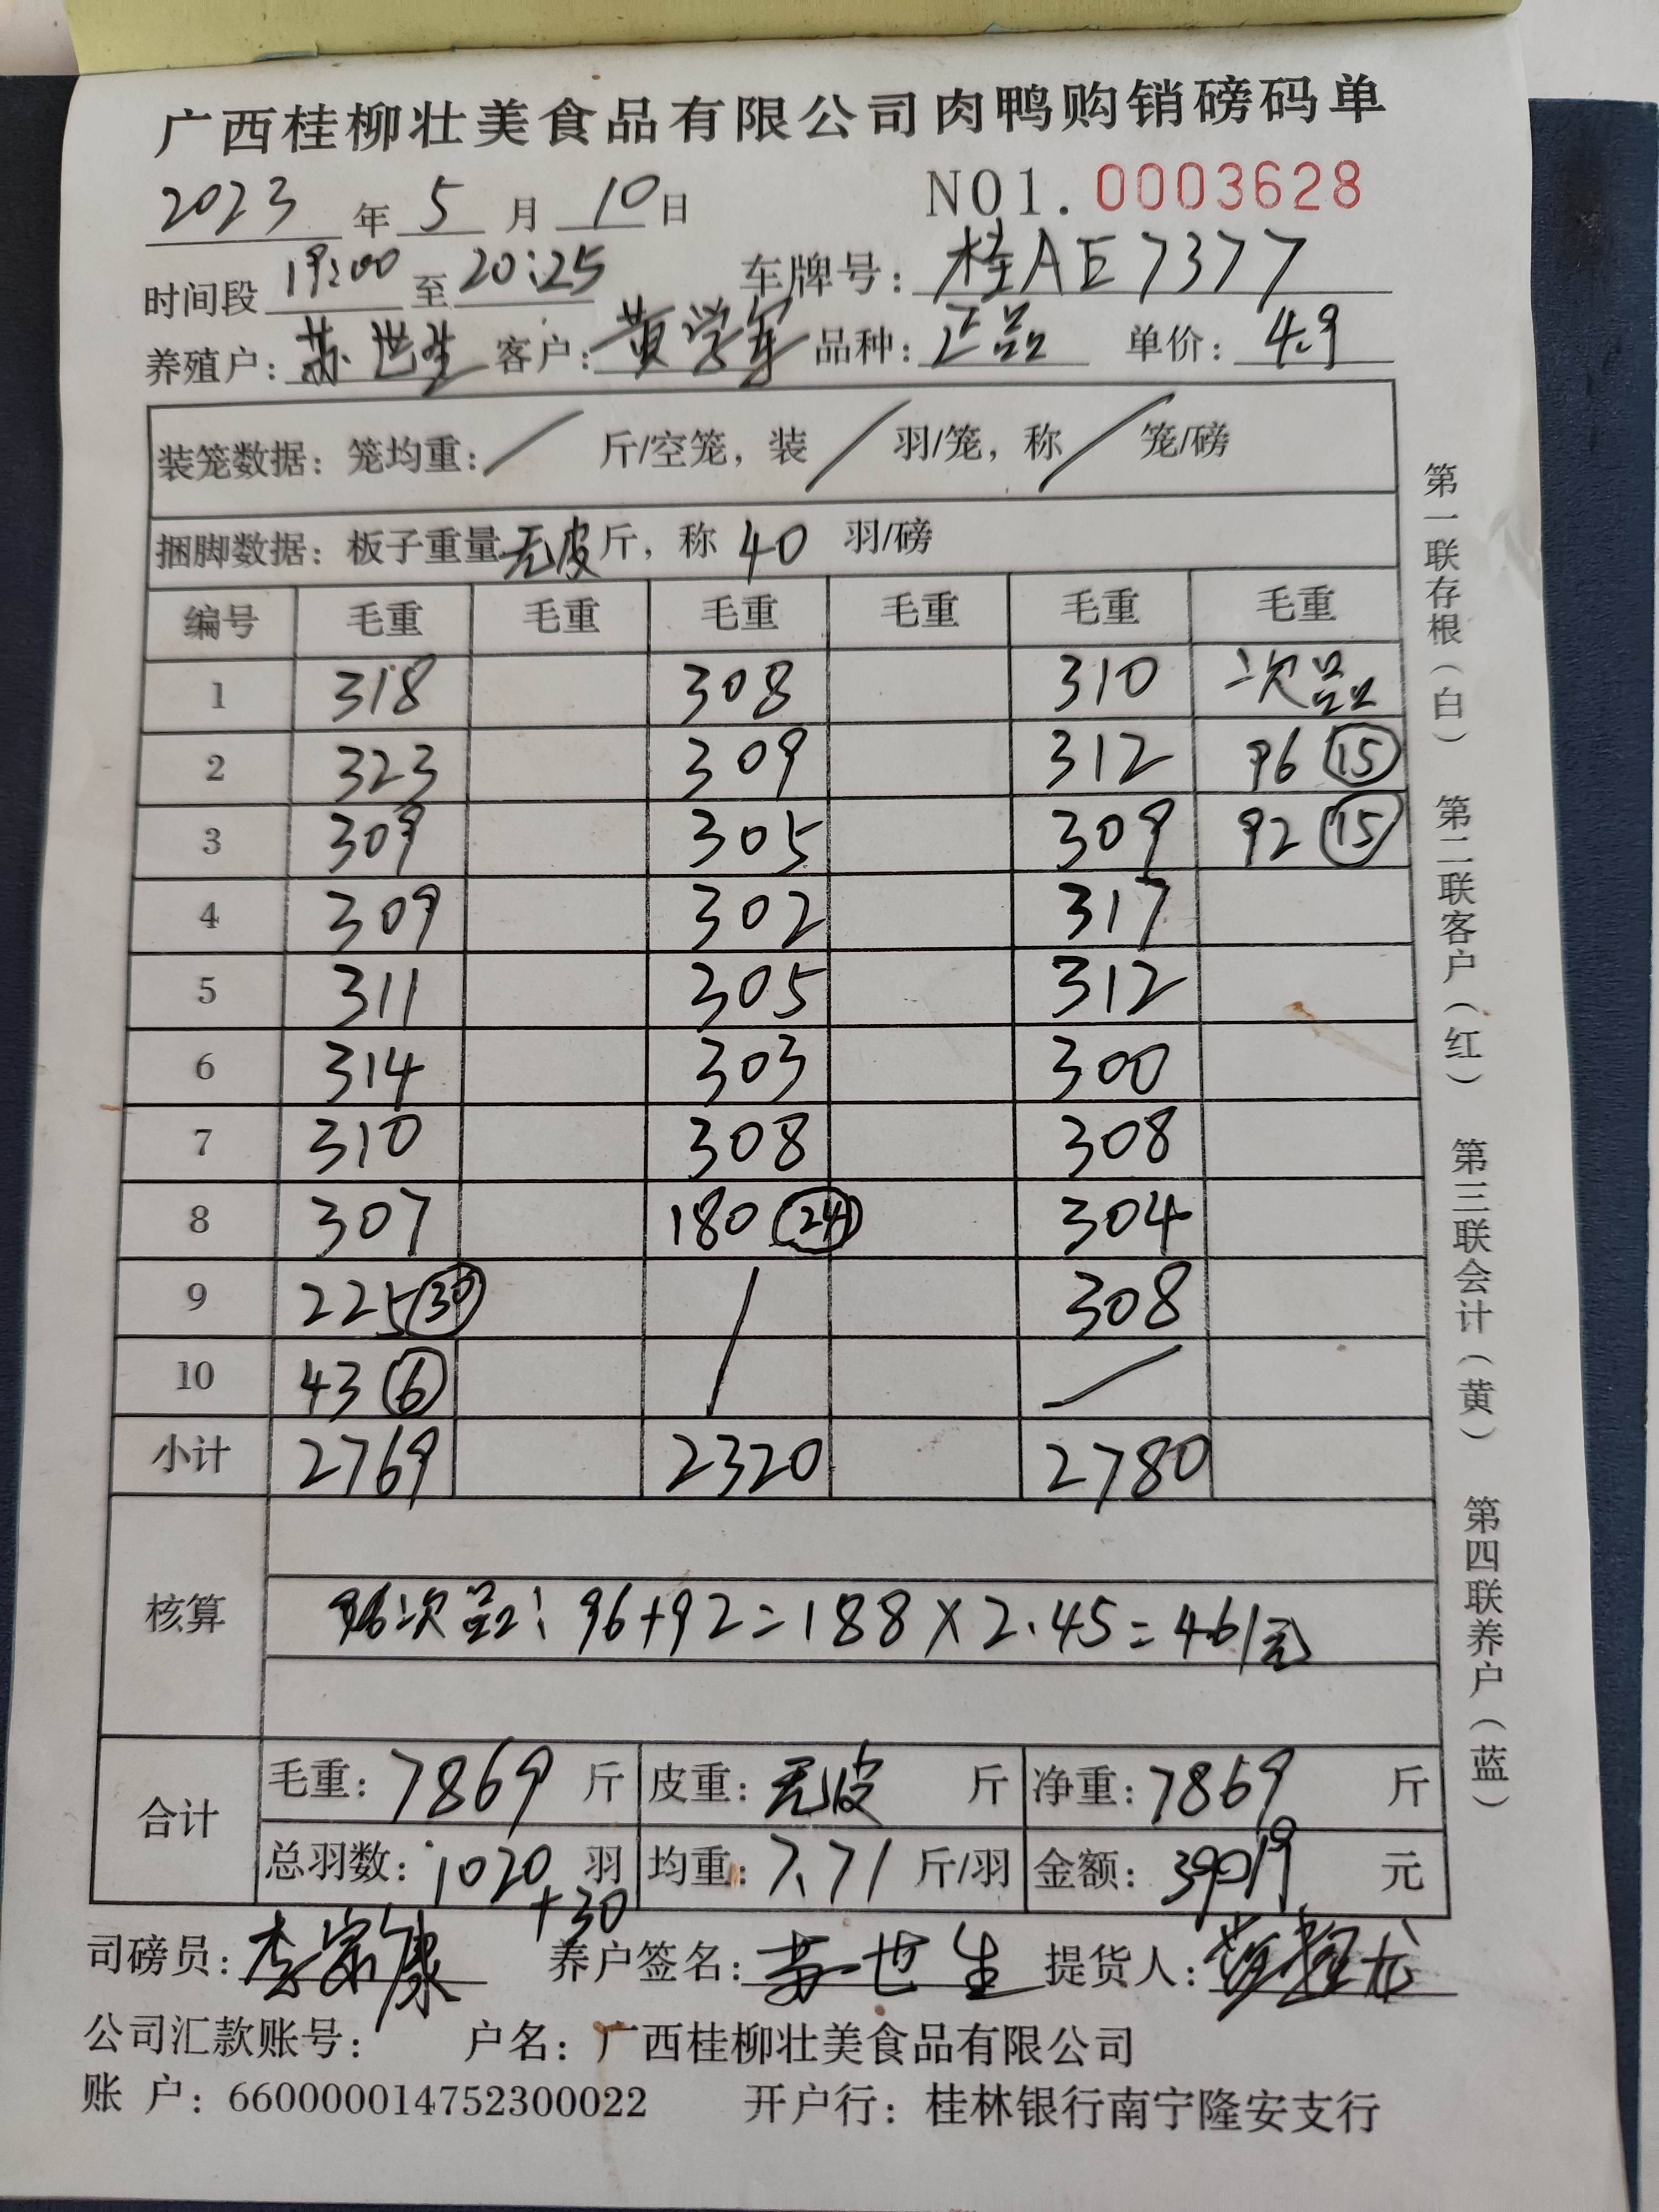 广西桂柳壮美食品有限公司肉鸭购销磅码单
2023 年 5 月 10 日 NO1. 0003628
时间段 19:00 至 20:25 车牌号: 桂AE7377
养殖户: 苏世生 客户: 黄学军 品种: 正品 单价: 4.9
装笼数据: 笼均重: / 斤/空笼, 装 / 羽/笼, 称 / 笼/磅
捆脚数据: 板子重量 无皮 斤, 称 40 羽/磅
编号 毛重 毛重 毛重 毛重 毛重 毛重
1 318 308 310 次品
2 323 309 312 96 (15)
3 309 305 309 92 (15)
4 309 302 317
5 311 305 312
6 314 303 300
7 310 308 308
8 307 180 (24) 304
9 225 (30) / 308
10 43 (6) /
小计 2769 2320 2780
核算
次品: 96+92=188×2.45=461元
合计
毛重: 7869 斤 皮重: 无皮 斤 净重: 7869 斤
总羽数: 1020 羽 均重: 7.71 斤/羽 金额: 39019 元
+30
司磅员: 李宗康 养户签名: 苏世生 提货人:
公司汇款账号: 户名: 广西桂柳壮美食品有限公司
账 户: 660000014752300022 开户行: 桂林银行南宁隆安支行
第一联存根(白) 第二联客户(红) 第三联会计(黄) 第四联养户(蓝)